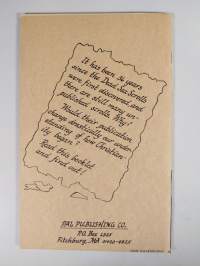 It has been 36 years
since the Dead Sea Scrolls
were first discovered, and
there are still many un-
published scrolls. Why?
Would their publication
change drastically our under-
standing of how Christian-
ity began?
Read this booklet
and find out!
PUBLISHING CO.
P.O. Box
Fitchburg, MA